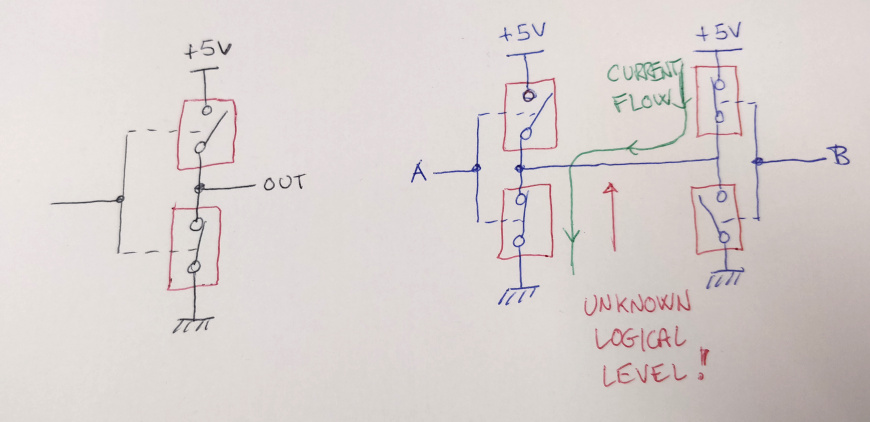 +5V
OUT
+5V
+5V
CURRENT
FLOW
A
B
UNKNOWN
LOGICAL
LEVEL!